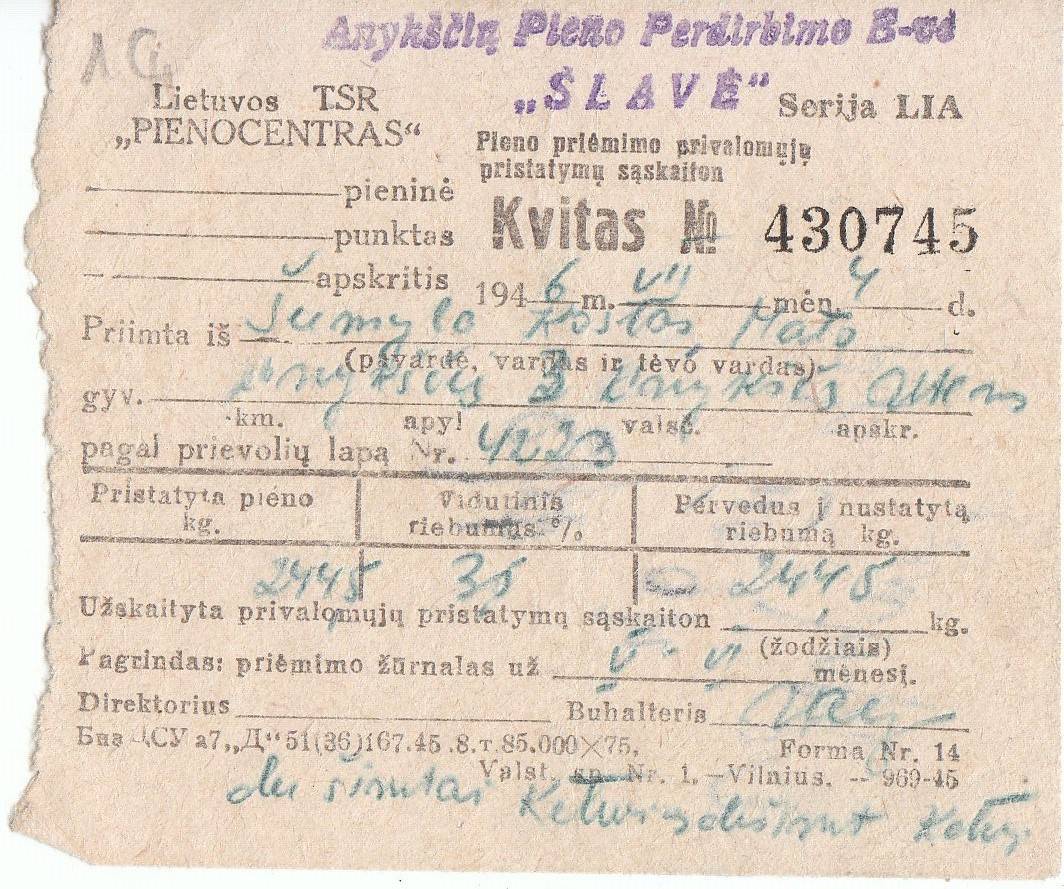 Anykščių Pieno Perdirbimo B-vė
„ŠLAVĖ“
Lietuvos TSR
„PIENOCENTRAS“
Serija LIA
Pieno priėmimo privalomųjų
pristatymų sąskaiton
pieninė
punktas
apskritis
Kvitas № 430745
1946 m. VII mėn. 4 d.
Priimta iš Šumylo Kostas Mato
(pavardė, vardas ir tėvo vardas)
gyv. Anykščių 3 Anykščių
km. apyl valsč. apskr.
pagal prievolių lapą Nr. 4223
Pristatyta pieno kg.
Vidutinis riebumas %
Pervedus į nustatytą riebumą kg.
244,5 35 244,5
Užskaityta privalomųjų pristatymų sąskaiton kg.
(žodžiais)
Pagrindas: priėmimo žurnalas už V-VI mėnesį.
Direktorius Buhalteris
ЦСУ а7 „Д“ 51(36)167.45 .8.т.85.000×75. Forma Nr. 14
Valst. sp. Nr. 1. —Vilnius. — 969-45
du šimtai